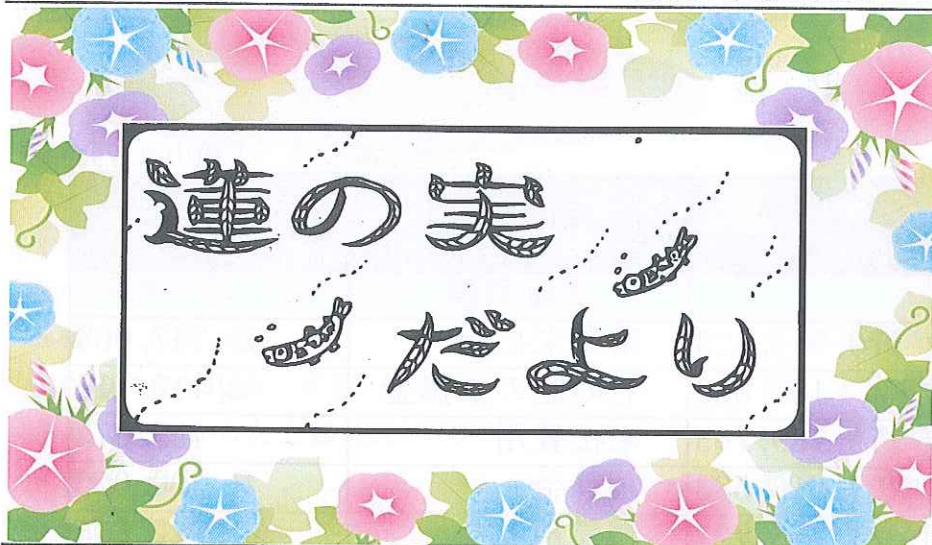 蓮の実
だより